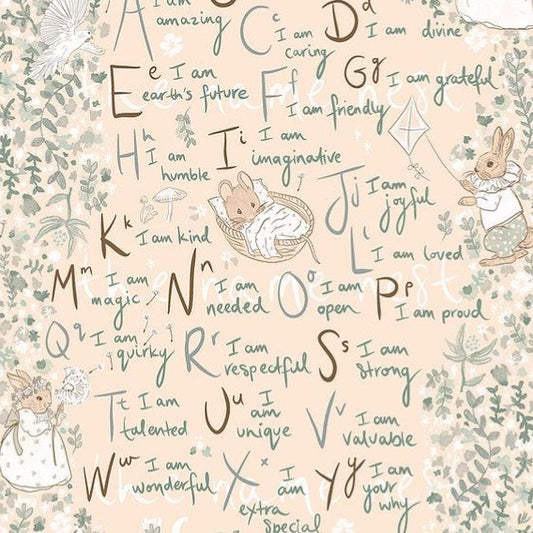 I am
A amazing
C c I am caring
D d I am divine
E e I am
earth's future
F f I am friendly
G g I am grateful
H h I am
humble
I i I am
imaginative
J j I am
joyful
K k I am kind
L l I am loved
M m I am
magic
N n I am
needed
O o I am
open
P p I am proud
Q q I am
quirky
R r I am
respectful
S s I am
strong
T t I am
talented
U u I
am
unique
V v I am
valuable
W w I am
wonderful
X x I
am
extra
special
Y y I am
your
why
the name nest
the name nest
the name nest